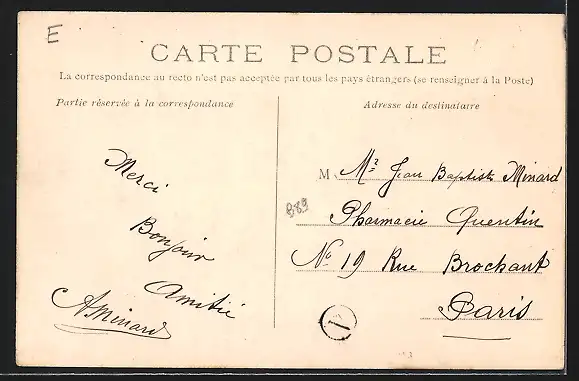 E
CARTE POSTALE
La correspondance au recto n'est pas acceptée par tous les pays étrangers (se renseigner à la Poste)
Partie réservée à la correspondance
Adresse du destinataire
Merci
Bonjour
Amitié
A Minard
M Mr Jean Baptiste Minard
Pharmacie Quentin
No 19 Rue Brochant
Paris
889